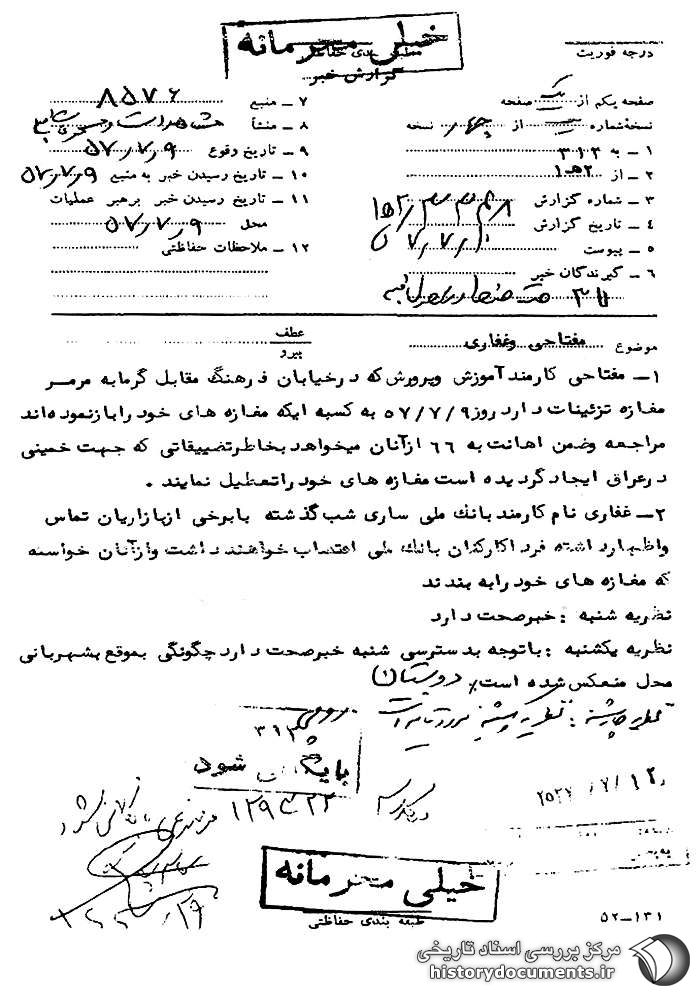 خیلی محرمانه
طبقه بندی حفاظتی
گزارش خبر
درجه فوریت
صفحه یکم از یک صفحه
نسخه شماره یک از چهار نسخه
۱ ـ به ۳۱۲
۲ ـ از ۲هـ۱
۳ ـ شماره گزارش
۴ ـ تاریخ گزارش
۵ ـ پیوست
۶ ـ گیرندگان خبر
۷ ـ منبع ۸۵۷۶
۸ ـ منشأ
۹ ـ تاریخ وقوع ۵۷٫۷٫۹
۱۰ ـ تاریخ رسیدن خبر به منبع ۵۷٫۷٫۹
۱۱ ـ تاریخ رسیدن خبر برهبر عملیات
محل ۵۷٫۷٫۹
۱۲ ـ ملاحظات حفاظتی
موضوع مفتاحی و غفاری
عطف
پیرو
۱ـ مفتاحی کارمند آموزش وپرورش که در خیابان فرهنگ مقابل گرمابه مرمر
مغازه تزئینات دارد روز ۵۷/۷/۹ به کسبه ایکه مغازه های خود را باز نموده اند
مراجعه وضمن اهانت به ۶۶ از آنان میخواهد بخاطر تضییقاتی که جهت خمینی
در عراق ایجاد گردیده است مغازه های خود را تعطیل نمایند .
۲ـ غفاری نام کارمند بانک ملی ساری شب گذشته بابرخی از بازاریان تماس
واظهار داشته فردا کارکنان بانک ملی اعتصاب خواهند داشت واز آنان خواسته
که مغازه های خود را به بندند
نظریه شنبه : خبر صحت دارد
نظریه یکشنبه : باتوجه بدسترسی شنبه خبر صحت دارد چگونگی بموقع بشهربانی
محل منعکس شده است٪ دوستان
۳۱۲
بایگانی شود
۱۲۹۴۲۲
۲۵۳۷/۷/۱۲
خیلی محرمانه
طبقه بندی حفاظتی
۵۲ـ۱۳۱
مرکز بررسی اسناد تاریخی
historydocuments.ir